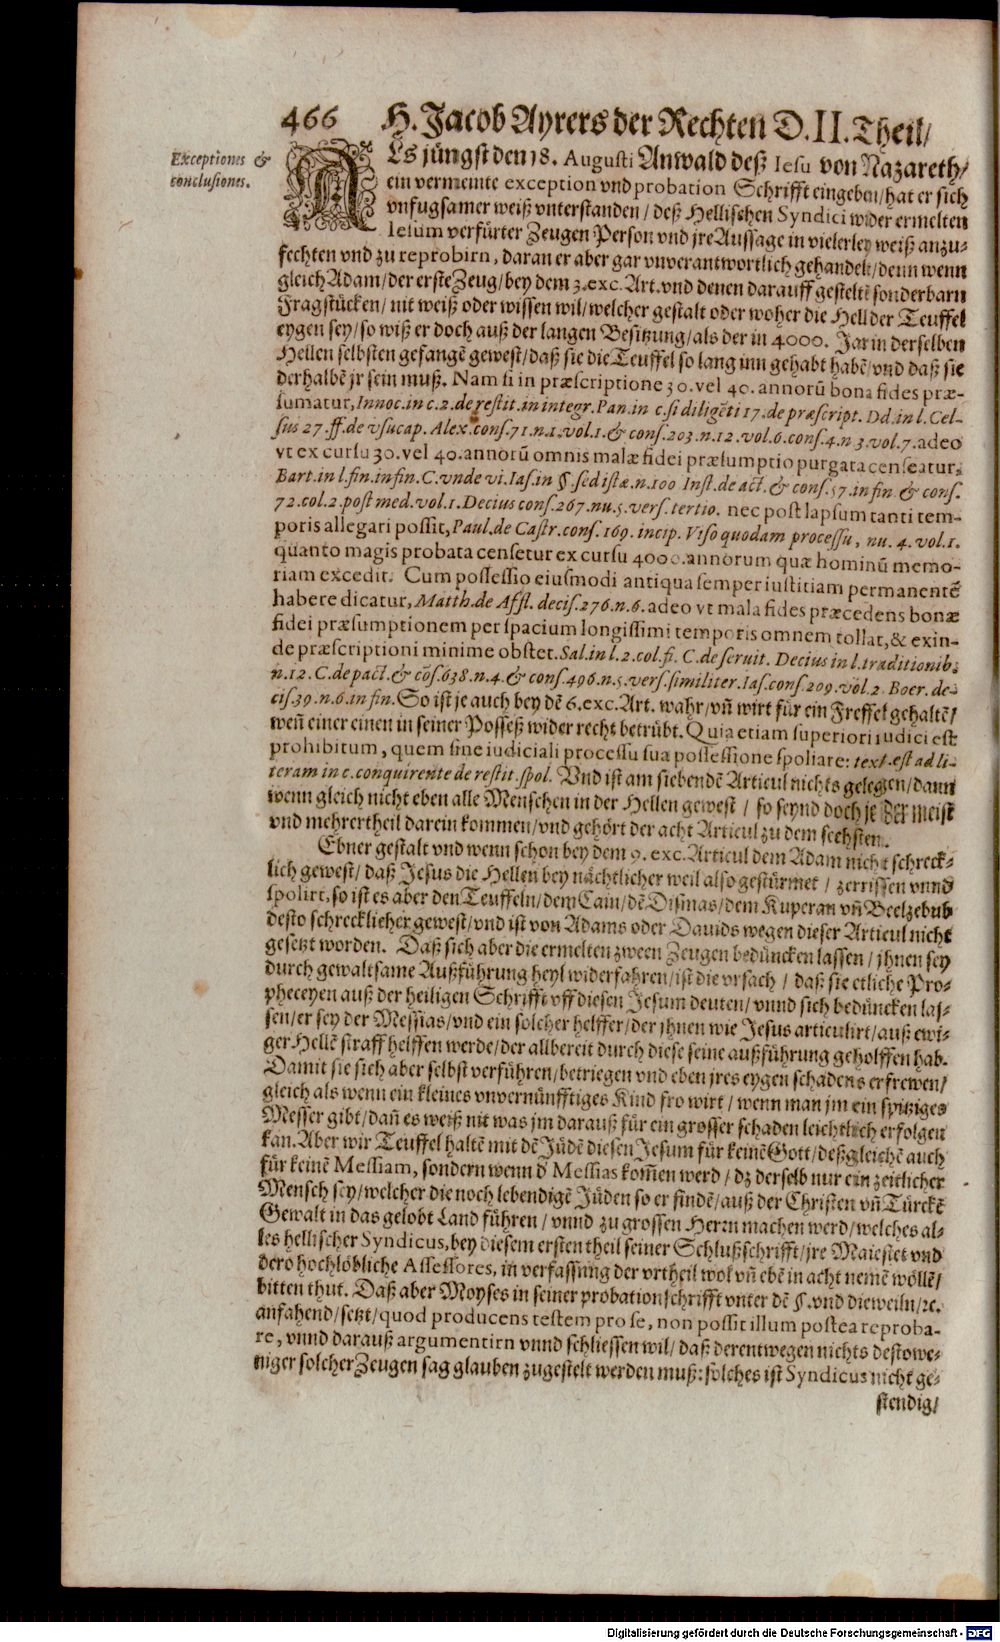 466 H. Jacob Ayrers der Rechten D. II. Theil/
Exceptiones &
conclusiones.
ALs jüngst den 18. Augusti Anwald deß Iesu von Nazareth/
ein vermeinte exception vnd probation Schrifft eingeben/ hat er sich
vnfugsamer weiß vnterstanden/ deß Hellischen Syndici wider ermelten
Iesum verfürter Zeugen Person vnd jre Aussage in vielerley weiß anzu-
fechten vnd zu reprobirn, daran er aber gar vnverantwortlich gehandelt/ denn wenn
gleich Adam/ der erste Zeug/ bey dem 3. exc. Art. vnd denen darauff gesteltē sonderbarn
Fragstücken/ nit weiß oder wissen wil/ welcher gestalt oder woher die Hell der Teuffel
eygen sey/ so wiß er doch auß der langen Besitzung/ als der in 4000. Jar in derselben
Hellen selbsten gefangē gewest/ daß sie die Teuffel so lang inn gehabt habē/ vnd daß sie
derhalbē jr sein muß. Nam si in præscriptione 30. vel 40. annorū bona fides præ-
sumatur, Innoc. in c. 2. de restit. in integr. Pan. in c. si diligēti 17. de præscript. Dd. in l. Cel-
sus 27. ff. de vsucap. Alex. cons. 71. n. 1. vol. 1. & cons. 203. n. 12. vol. 6. cons. 4. n 3. vol. 7. adeo
vt ex cursu 30. vel 40. annorū omnis malæ fidei præsumptio purgata censeatur,
Bart. in l. fin. in fin. C. vnde vi. Ias. in §. sed istæ. n. 100 Inst. de act. & cons. 57. in fin. & cons.
72. col. 2. post med. vol. 1. Decius cons. 267. nu. 5. vers. tertio. nec post lapsum tanti tem-
poris allegari possit, Paul. de Castr. cons. 169. incip. Viso quodam processu, nu. 4. vol. 1.
quanto magis probata censetur ex cursu 4000. annorum quæ hominū memo-
riam excedit. Cum possessio eiusmodi antiqua semper iustitiam permanentē
habere dicatur, Matth. de Affl. decis. 276. n. 6. adeo vt mala fides præcedens bonæ
fidei præsumptionem per spacium longissimi temporis omnem tollat, & exin-
de præscriptioni minime obstet. Sal. in l. 2. col. fi. C. de seruit. Decius in l. traditionib.
n. 12. C. de pact. & cōs. 638. n. 4. & cons. 496. n. 5. vers. similiter. Ias. cons. 209. vol. 2. Boer. de-
cis. 39. n. 6. in fin. So ist je auch bey dē 6. exc. Art. wahr/ vñ wirt für ein Freffel gehaltē/
weñ einer einen in seiner Posseß wider recht betrübt. Quia etiam superiori iudici est
prohibitum, quem sine iudiciali processu sua possessione spoliare: text. est ad li-
teram in c. conquirente de restit. spol. Vnd ist am siebendē Articul nichts gelegen/ dann
wenn gleich nicht eben alle Menschen in der Hellen gewest/ so seynd doch je der meist
vnd mehrertheil darein kommen/ vnd gehört der acht Articul zu dem sechsten.
Ebner gestalt vnd wenn schon bey dem 9. exc. Articul dem Adam nicht schreck-
lich gewest/ daß Jesus die Hellen bey nächtlicher weil also gestürmet/ zerrissen vnnd
spolirt, so ist es aber den Teuffeln/ dem Cain/ dē Dismas/ dem Kuperan vñ Beelzebub
desto schrecklicher gewest/ vnd ist von Adams oder Dauids wegen dieser Articul nicht
gesetzt worden. Daß sich aber die ermelten zween Zeugen beduncken lassen/ jhnen sey
durch gewaltsame Außführung heyl widerfahren/ ist die vrsach/ daß sie etliche Pro-
pheceyen auß der heiligen Schrifft vff diesen Jesum deuten/ vnnd sich beduncken las-
sen/ er sey der Messias/ vnd ein solcher helffer/ der jhnen wie Jesus articulirt/ auß ewi-
ger Hellē straff helffen werde/ der allbereit durch diese seine außführung geholffen hab.
Damit sie sich aber selbst verführen/ betriegen vnd eben jres eygen schadens erfrewen/
gleich als wenn ein kleines vnvernünfftiges Kind fro wirt/ wenn man jm ein spitziges
Messer gibt/ dañ es weiß nit was jm darauß für ein grosser schaden leichtlich erfolgen
kan. Aber wir Teuffel haltē mit dē Jüdē diesen Jesum für keinē Gott/ deßgleichē auch
für keinē Messiam, sondern wenn d' Messias kom̄en werd/ dz derselb nur ein zeitlicher
Mensch sey/ welcher die noch lebendigē Jüden so er findē/ auß der Christen vñ Türckē
Gewalt in das gelobt Land führen/ vnnd zu grossen Herrn machen werd/ welches al-
les hellischer Syndicus, bey diesem ersten theil seiner Schlußschrifft/ jre Maiestet vnd
dero hochlöbliche Assessores, in verfassung der vrtheil wol vñ ebē in acht nemē wöllē/
bitten thut. Daß aber Moyses in seiner probationschrifft vnter dē §. vnd dieweiln/ ꝛc.
anfahend/ setzt/ quod producens testem pro se, non possit illum postea reproba-
re, vnnd darauß argumentirn vnnd schliessen wil/ daß derentwegen nichts destowe-
niger solcher Zeugen sag glauben zugestelt werden muß: solches ist Syndicus nicht ge-
stendig/
Digitalisierung gefördert durch die Deutsche Forschungsgemeinschaft - DFG